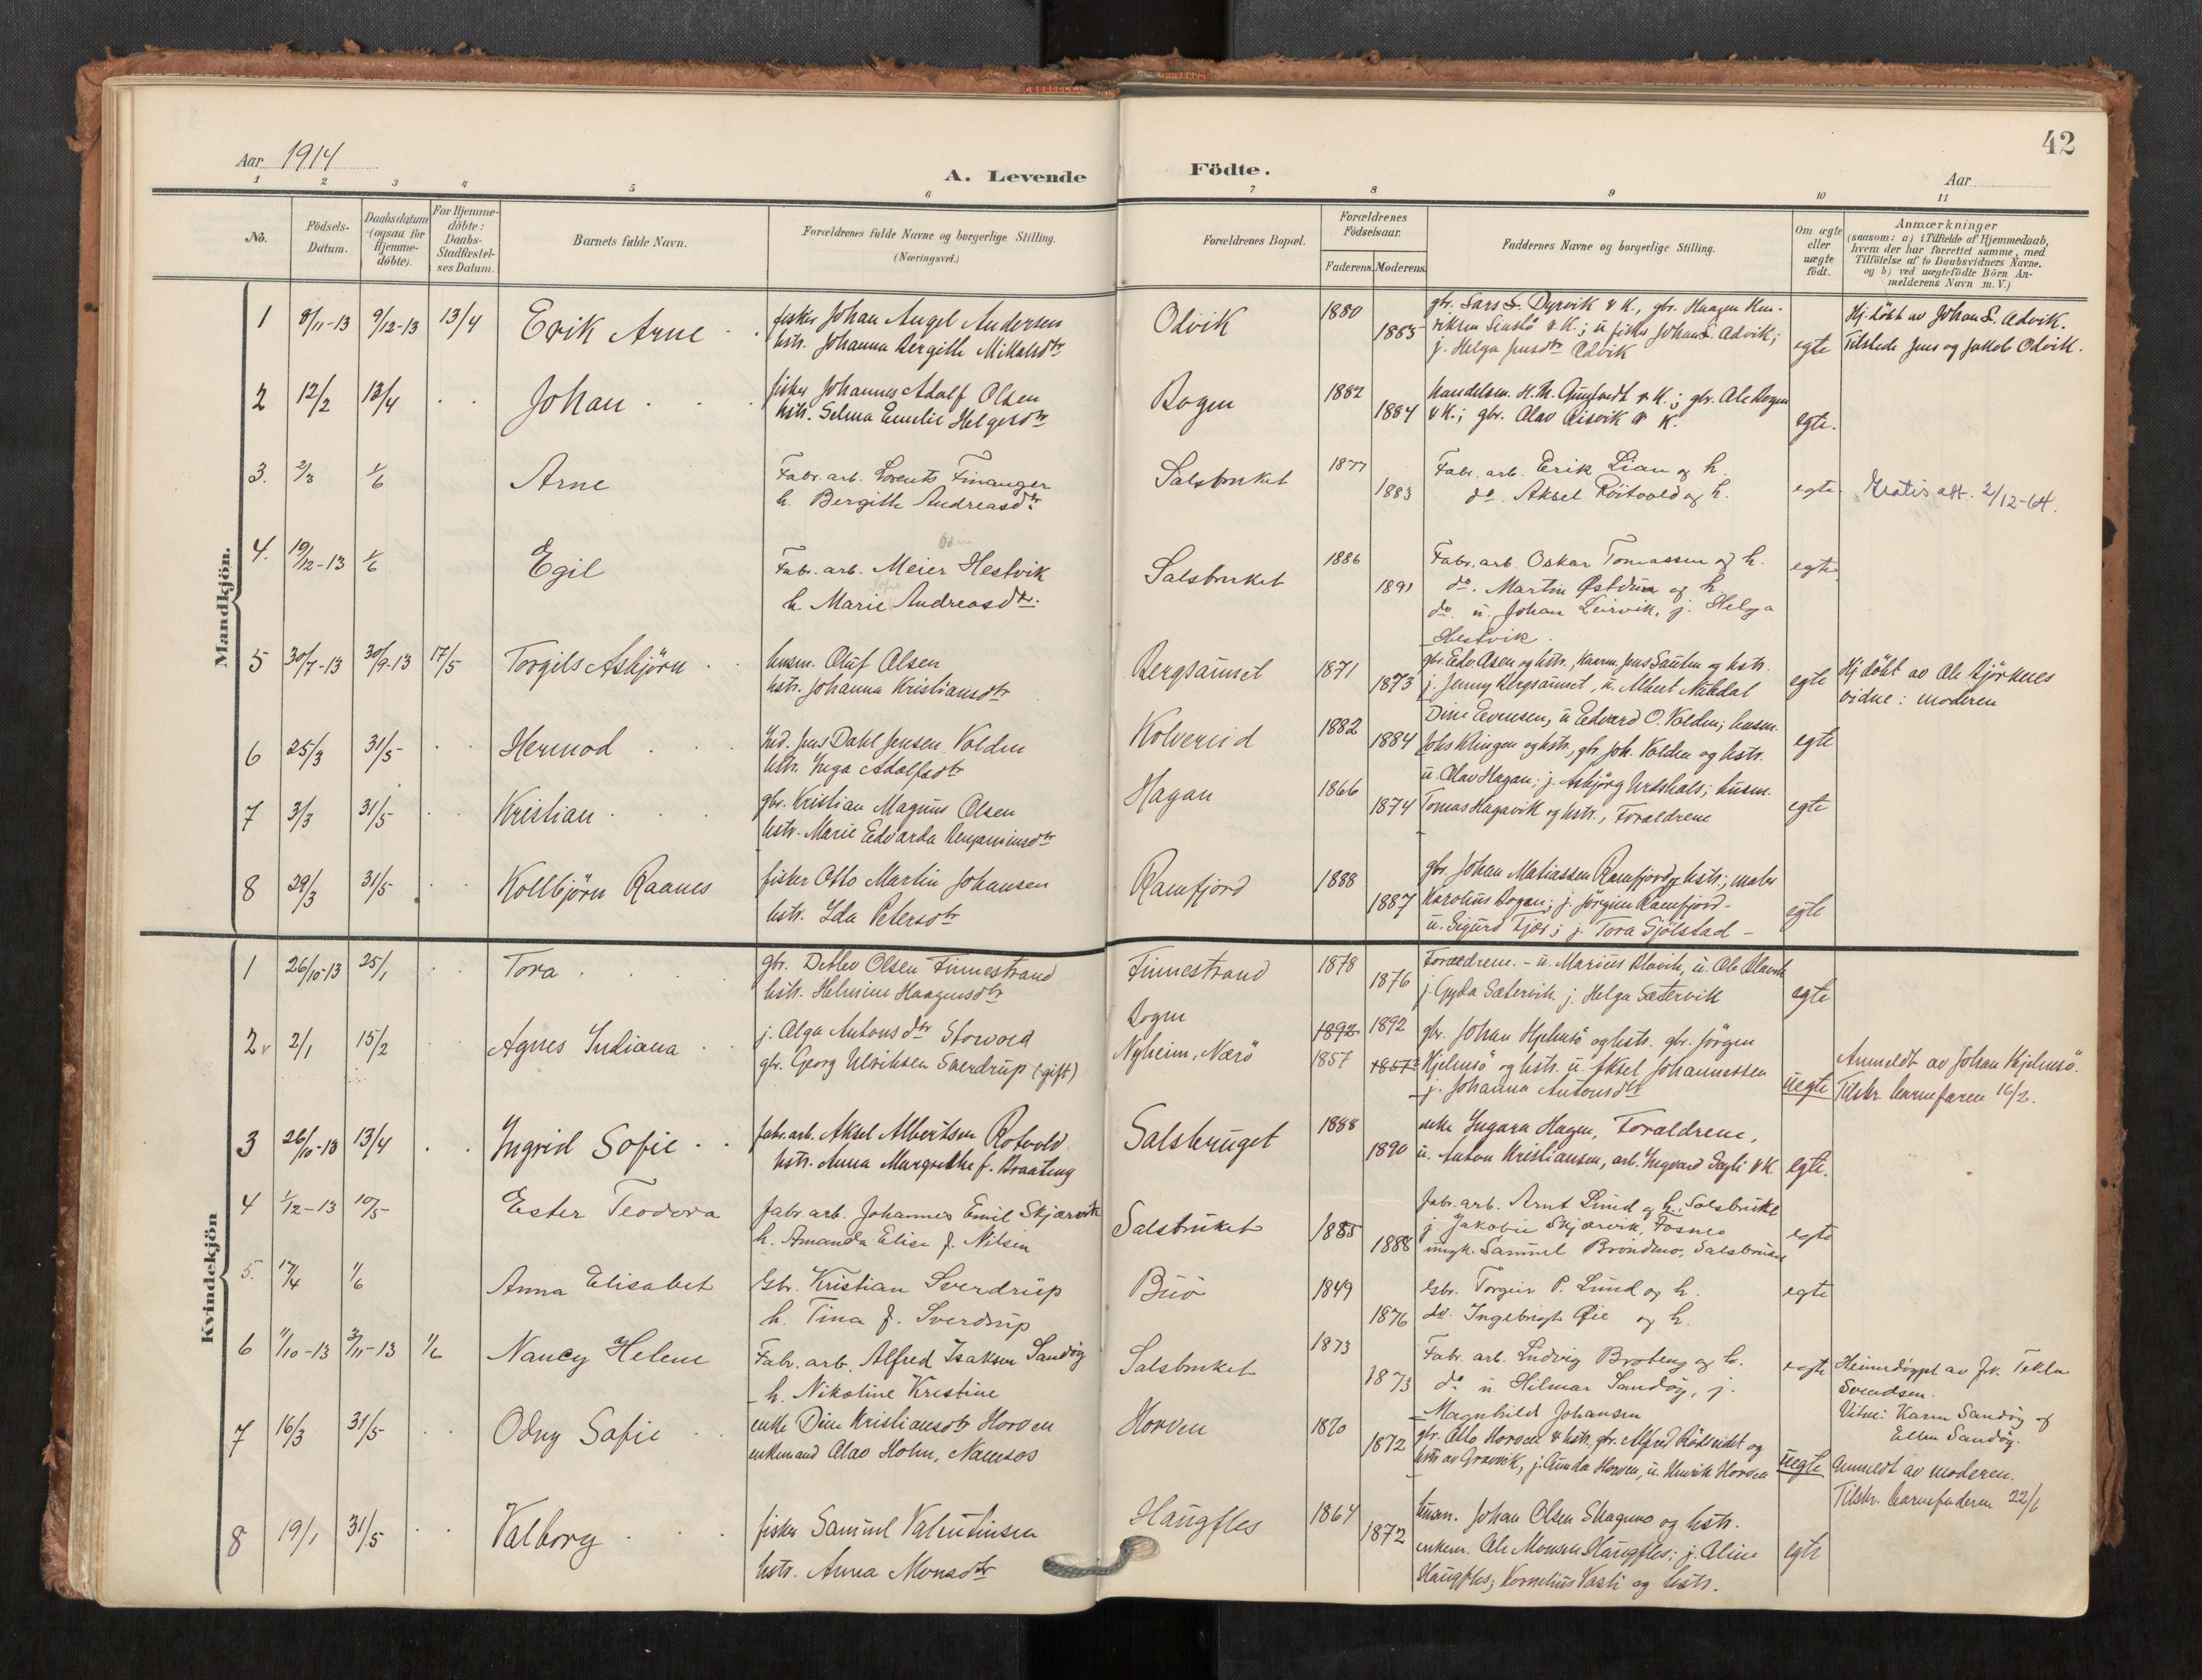 42
Aar 1914
A. Levende Födte.
Aar
1 2 3 4 5 6 7 8 9 10 11
No.
Födsels-Datum.
Daabsdatum (ogsaa for Hjemme-döbte).
For Hjemme-döbte: Daabs-Stadfæstel-ses Datum.
Barnets fulde Navn.
Forældrenes fulde Navne og borgerlige Stilling. (Næringsvei.)
Forældrenes Bopæl.
Forældrenes Födselsaar.
Faderens. Moderens.
Faddernes Navne og borgerlige Stilling.
Om ægte eller uægte födt.
Anmærkninger (saasom: a) i Tilfælde af Hjemmedaab, hvem der har forrettet samme, med Tilföielse af to Daabsvidners Navne, og b) ved uægtefödte Börn Anmelderens Navn m. V.)
Mandkjön.
1 8/11-13 9/12-13 13/4 Erik Arne
fisker Johan Angel Andersen
hstr. Johanna Bergitte Mikalsdtr
Odvik 1880 1885
gbr. Lars L. Dyrvik & K., gbr. Haagen Hen-
j. Helga Odvik
egte
Hj. döbt av Johan L. Advik.
Tilstede Jens og Jakob Odvik.
2 12/2 13/4 Johan
fisker Johannes Adolf Olsen
hstr. Selma Emelie Helgesdtr
Bogen 1882 1884
handelsm. H. M. & K.; gbr. Ole Bogen
& K.; gbr. Olav Risvik & K.
egte.
3. 2/3 1/6 Arne
Fabr. arb. Lorents Finanger
h. Bergitte Andreasdtr.
Salsbruket 1877 1883
Fabr. arb. Erik Lian og h.
do. Aksel Röitvold og h.
egte
Gratis att. 2/12-64.
4. 19/12-13 1/6 Egil
Fabr. arb. Meier Hestvik
h Marie Andreasdtr.
Salsbruket 1886 1891
Fabr. arb. Oskar Tomassen og h.
do. Martin Østdun og h.
do. u. Johan Leirvik, j. Helga
Hestvik.
egte
5 30/7-13 30/9-13 17/5 Torgils Asbjörn
husm. Oluf Olsen
hstr. Johanna Kristiansdtr
Bergsaunet 1871 1873
gbr. Edv. Asen og hstr., Jens og hstr.
j. Jenny Bergsaunet, u. Albert
egte
Hj. döbt av Ole Björknes
vidne: moderen
6 25/3 31/5 Hermod
Ind. Jens Dahl Jensen Volden
hstr. Inga Adolfsdtr
Kolvereid 1882 1884
Dine Evensen, u Edvard O. Volden; husm.
Johs Klingen og hstr., gbr. Joh. Volden og hstr.
egte
7 3/3 31/5 Kristian
gbr. Kristian Magnus Olsen
hstr. Marie Edvarda Benjaminsdtr
Hagan 1866 1874
u. Olav Hagan; j. Asbjörg; husm.
Tomas Hagavik og hstr., Foraldrene
egte
8 29/3 31/5 Kollbjörn Raanes
fisker Otto Martin Johansen
hstr. Ida Petersdtr
Ramfjord 1888 1887
gbr. Johan Matiassen Ramfjord og hstr.; maler
Karolius Bogan; j. Jörgine Ramfjord -
u. Sigurd Fjær; j. Tora Sjölstad -
egte
Kvindekjön
1 26/10-13 25/1 Tora
gbr. Detlev Olsen Finnestrand
hstr. Helmine Haagensdtr
Finnestrand 1878 1876
Foraldrene. - u. Marius Klavik, u. Ole Klavik
j. Gyda Sætervik. j. Helga Sætervik
egte
2 2/1 15/2 Agnes Indiana
j. Olga Antonsdtr Storvold
gbr. Georg Ulriksen Sverdrup (gift)
Bogen
Nyheim, Nærö
1892 1892
1857 1857
gbr. Johan Hjelmsö og hstr. gbr. Jörgen
Hjelmsö og hstr. u. Aksel Johannessen
j. Johanna Antonsdtr
uegte
Anmeldt av Johan Hjelmsö.
Tilskr. barnefaren 16/2.
3 26/10-13 13/4 Ingrid Sofie
fabr. arb. Aksel Albertsen Rotvold
hstr. Anna Margrethe f. Braateng
Salsbruget 1888 1890
enke Ingara Hagen, Foraldrene,
u. Anton Kristiansen, arb. Ingvard & K.
egte.
4 1/12-13 10/5 Ester Teodora
fabr. arb. Johannes Emil Skjærvik
h. Amanda Elise f. Nilsen
Salsbruket 1885 1888
fabr. arb. Arnt Lund og h. Salsbruket
j. Jakobie Skjærvik, Fosnes
ungk. Samuel Bröndmo, Salsbruket
egte
5. 17/4 1/6 Anna Elisabet
Gbr. Kristian Sverdrup
h. Tina f. Sverdrup
Buö 1849 1876
Gbr. Torgeir P. Lund og h.
do. Ingebrigt Øie og h.
egte
6 11/10-13 3/11-13 1/6 Nancy Helene
Fabr. arb. Alfred Isaksen Sandöy
h. Nikoline Kristine
Salsbruket 1873 1873
Fabr. arb. Ludvig Broteng og h.
do u. Hilmar Sandöy, j.
Magnhild Johansen
egte
Heimedöypt av frk. Tekla
Svendsen.
Vitne: Karen Sandöy og
Ellen Sandöy.
7 16/3 31/5 Odny Sofie
enke Dine Kristiansdtr Horven
enkemand Olav Holm, Namsos
Horven 1870 1872
gbr. Otto Horven & hstr, gbr. Alfred og
hstr av Gravvik, j. Gunda Horven, u. Henrik Horven
uegte
Anmeldt av moderen.
Tilskr. barnefaderen 22/6
8 19/1 31/5 Valborg
fisker Samuel Valentinsen
hstr. Anna Monsdtr
Haugfles 1864 1872
husm. Johan Olsen Skagmo og hstr.
enkem. Ole Monsen Haugfles; j. Oline
Haugfles; Kornelius Vasli og hstr.
egte